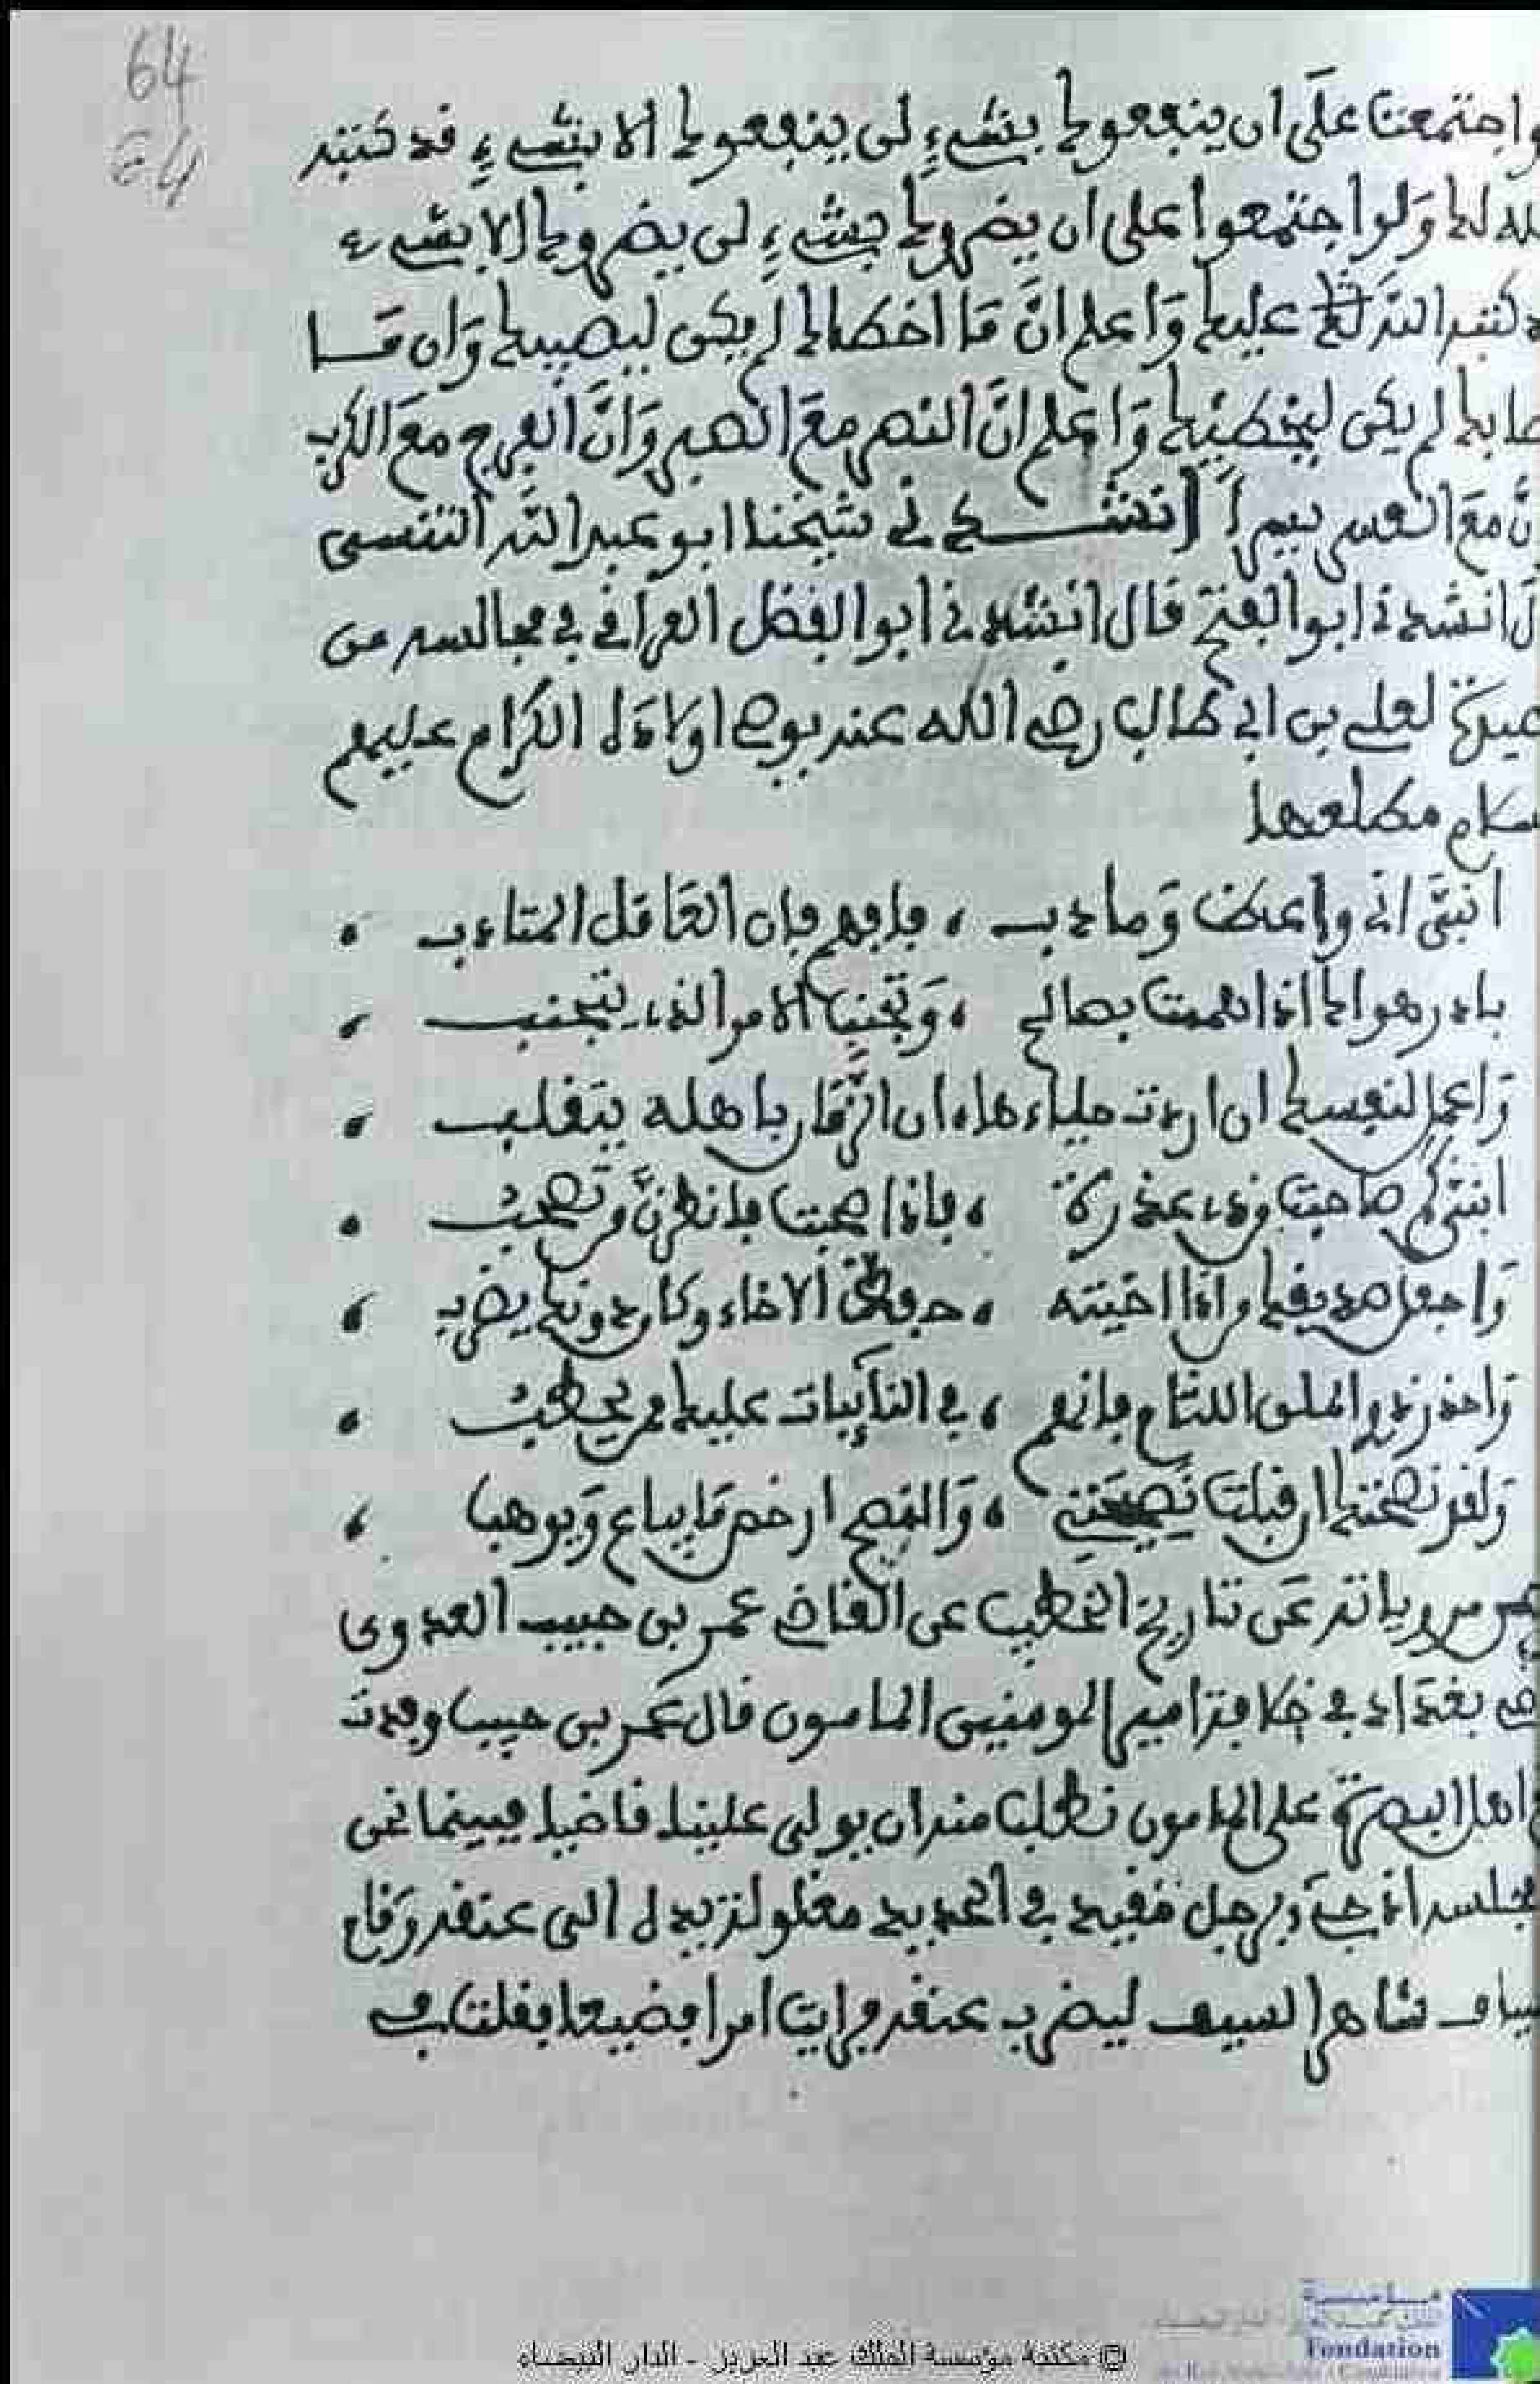 64
64
واجتمعت على ان ينفعوك بشيءٍ لن ينفعوك الا بشيءٍ قد كتبه
لك ولو اجتمعوا على ان يضروك بشيءٍ لن يضروك الا بشيء
كتبه الله عليك وَاعلم انَّ مَا اخطاك لم يكن ليصيبك وَان مَا
لم يكن ليخطئك وَاعلم انَّ النصر معَ الصبر وَانَّ الفرج معَ الكرب
معَ العسر يسراً انشدني شيخنا ابو عبد الله التنسي
انشدني ابو الفتح قال انشدني ابو الفضل العراقي في مجالسه من
لعلي بن ابي طالب رضي الله عنه يوصي اولاده الكرام عليهم
مطلعها
ابنيَّ اني واعظ وَمادب ، فافهم فإن العَاقل المتادب ،
بادر هواك اذا هممت بصالح ، وَتجنب الامر الذي يتجنب ،
وَاعمل لنفسك ان اردت حياءها، ان الزمَان باهله يتقلب ،
ابني كم صاحبت ذي غدرة ، فاذا صحبت فانظرنَّ من تصحب ،
وَاجعل صديقك من اذا اخيته ، حفظ الاخاء وكان دونك يضرب ،
وَاحذر ذوي الملق اللئام فانهم ، في النائبات عليك ممن يحطب ،
وَلقد نصحتك ان قبلت نصيحتي ، وَالنصح ارخص مَا يباع وَيوهب ،
مروياته عَن تاريخ الخطيب عن القاضي عمر بن حبيب العدوي
بغداد في خلافة امير المومنين المامون قال عمر بن حبيب وفدت
اهل البصرة على المامون نطلب منه ان يولي علينا قاضيا فبينما نحن
اذ جيَ برجل مقيد في الحديد مغلولة يده الى عنقه وَقام
شاهرا لسيف ليضرب عنقه فرايت امرا فضيعا فقلت في
© مكتبة مؤسسة الملك عبد العزيز - الدار البيضاء
Fondation